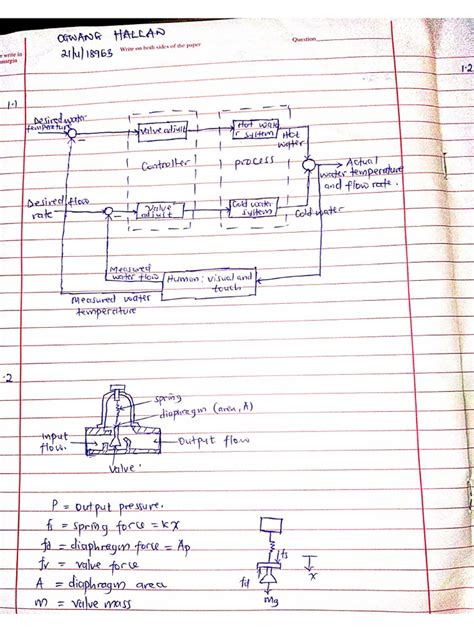 OGWANG HALLAN
21/U/18963
Write on both sides of the paper
Question
e write in
margin
1.1
1.2
Desired water
temperature
Valve adjust
Hot water
system
Hot
water
Controller
process
Actual
water temperature
and flow rate.
Desired flow
rate
Valve
adjust
Cold water
system
Cold water
Measured
water flow
Human: visual and
touch
Measured water
temperature
.2
spring
diaphragm (area, A)
Input
flow.
Output flow
Valve.
P = output pressure.
fs = spring force = kx
fd = diaphragm force = Ap
fv = valve force
A = diaphragm area
m = valve mass
fs
x
fd
mg